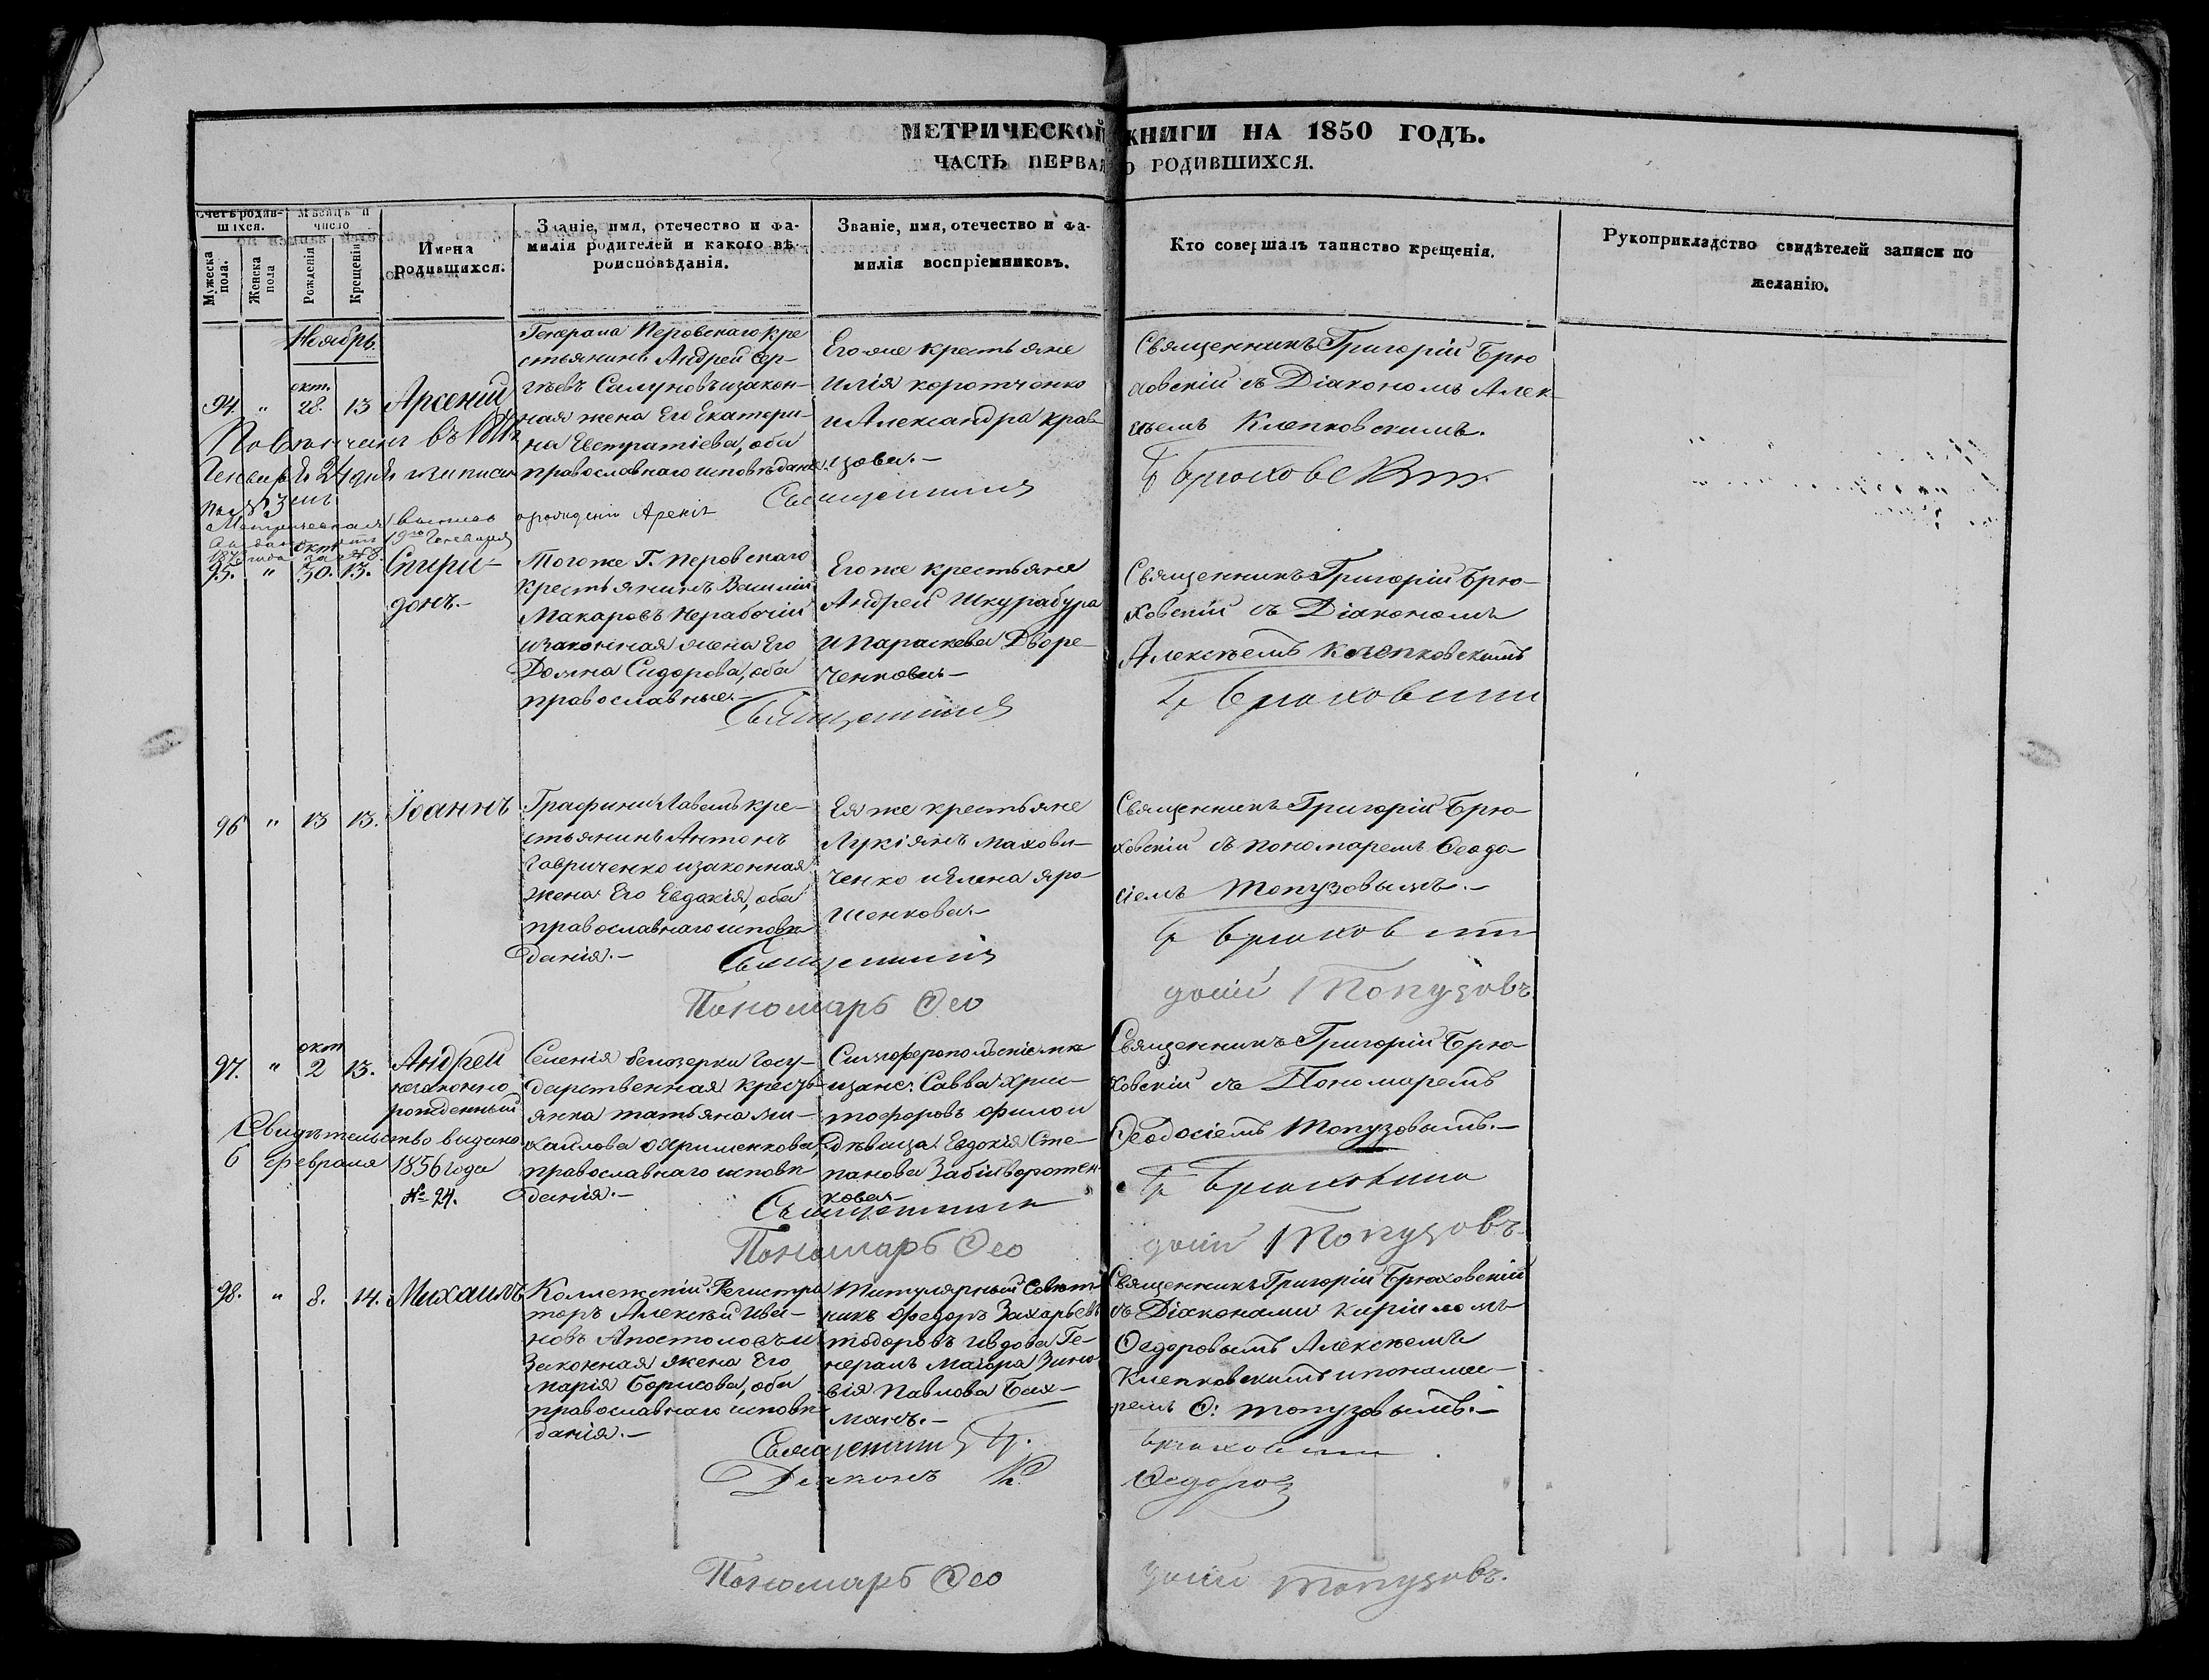 МЕТРИЧЕСКОЙ КНИГИ НА 1850 ГОДЪ.
ЧАСТЬ ПЕРВАЯ О РОДИВШИХСЯ.
Счетъ родив-
шихся.
Мужеска
пола.
Женска
пола
Мѣсяцъ и
число
Рожденія
Крещенія
Имена
родившихся.
Званіе, имя, отечество и фа-
милія родителей и какого вѣ-
роисповѣданія.
Званіе, имя, отечество и фа-
милія воспріемниковъ.
Кто совершалъ таинство крещенія.
Рукоприкладство свидѣтелей записи по
желанію.
Ноябрь.
94. " окт. 28. 13 Арсеній
Генерала Перовскаго кре
стьянинъ Андрей Сер-
гѣевъ Салуновъ изакон-
ная жена Его Екатери-
на Евстратіева, оба
православнаго исповѣданія
Его же крестьяне
Илія коротченко
и Александра крав
цова.-
Священникъ Григорій Брю
ховскій съ Діакономъ Алек-
сѣемъ Клепковскимъ.
Повѣнчанъ въ
Генваря 24 дня изаписан
под № 3
Священникъ
Метрическая выпись о рожденіи Арсенія
95. " окт 30. 13. Спири-
донъ.-
Того же Г. Перовскаго
Крестьянинъ Василій
Макаровъ Нерабочій
изаконная жена Его
Домна Сидорова, оба
православные.-
Его же крестьяне
Андрей Шкурабура
и Параскева Дворе-
ченкова.-
Священникъ Григорій Брю-
ховскій съ Діакономъ
Алексѣемъ Клепковскимъ
Священникъ
96 " 13 13. Іоаннъ
Графини Лаваль кре-
стьянинъ Антонъ
Гавриченко изаконная
жена Его Евдокія, оба
православнаго исповѣ
данія.-
Ея же крестьяне
Лукіянъ Махови-
ченко и Елена Яро-
шенкова.-
Священникъ Григорій Брю-
ховскій съ пономаремъ Ѳеодо
сіемъ Топузовымъ.-
Священникъ
Пономарь Ѳео досій Топузовъ.
97. " окт 2 13. Андрей
незаконно
рожденный
Селенія Белозерки Госу-
дарственная крестья-
янка татьяна Ми-
хайлова Охрименкова,
православнаго исповѣ
данія.-
Симферопольскіе мѣ
щане: Савва Хри-
тофоровъ Филои
Дѣвица Евдокія Сте-
панова Забійворотен-
кова-
Священникъ Григорій Брю-
ховскій съ Пономаремъ
Ѳеодосіемъ Топузовымъ.-
Свидѣтельство выдано
6 февраля 1856 года
№ 24.
Священникъ
Пономарь Ѳео досій Топузовъ.
98. " 8. 14. Михаилъ
Коллежскій Регистра
торъ Алексѣй Ива-
новъ Апостоловъ и
Законная жена Его
Марія Борисова, оба
православнаго исповѣ
данія.-
Титулярный Совѣт-
никъ Ѳедоръ Захарьевъ
тодоровъ ивдова Ге-
нералъ Маіора Зино-
вія Павлова Бах-
манъ.-
Священникъ Григорій Брюховскій
съ Діаконами Кирилломъ
Ѳедоровымъ Алексѣемъ
Клепковскимъ ипонама-
ремъ Ѳ: Топузовымъ.-
Священникъ Гр.
Діаконъ К. Ѳедоровъ
Пономарь Ѳео досій Топузовъ.